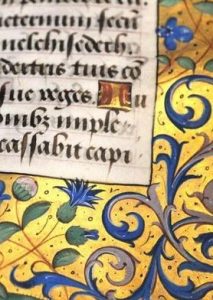 eternum secun
melchisedech
dextris tuis co
sue reges. Iu
onibz imple
cassabit capi